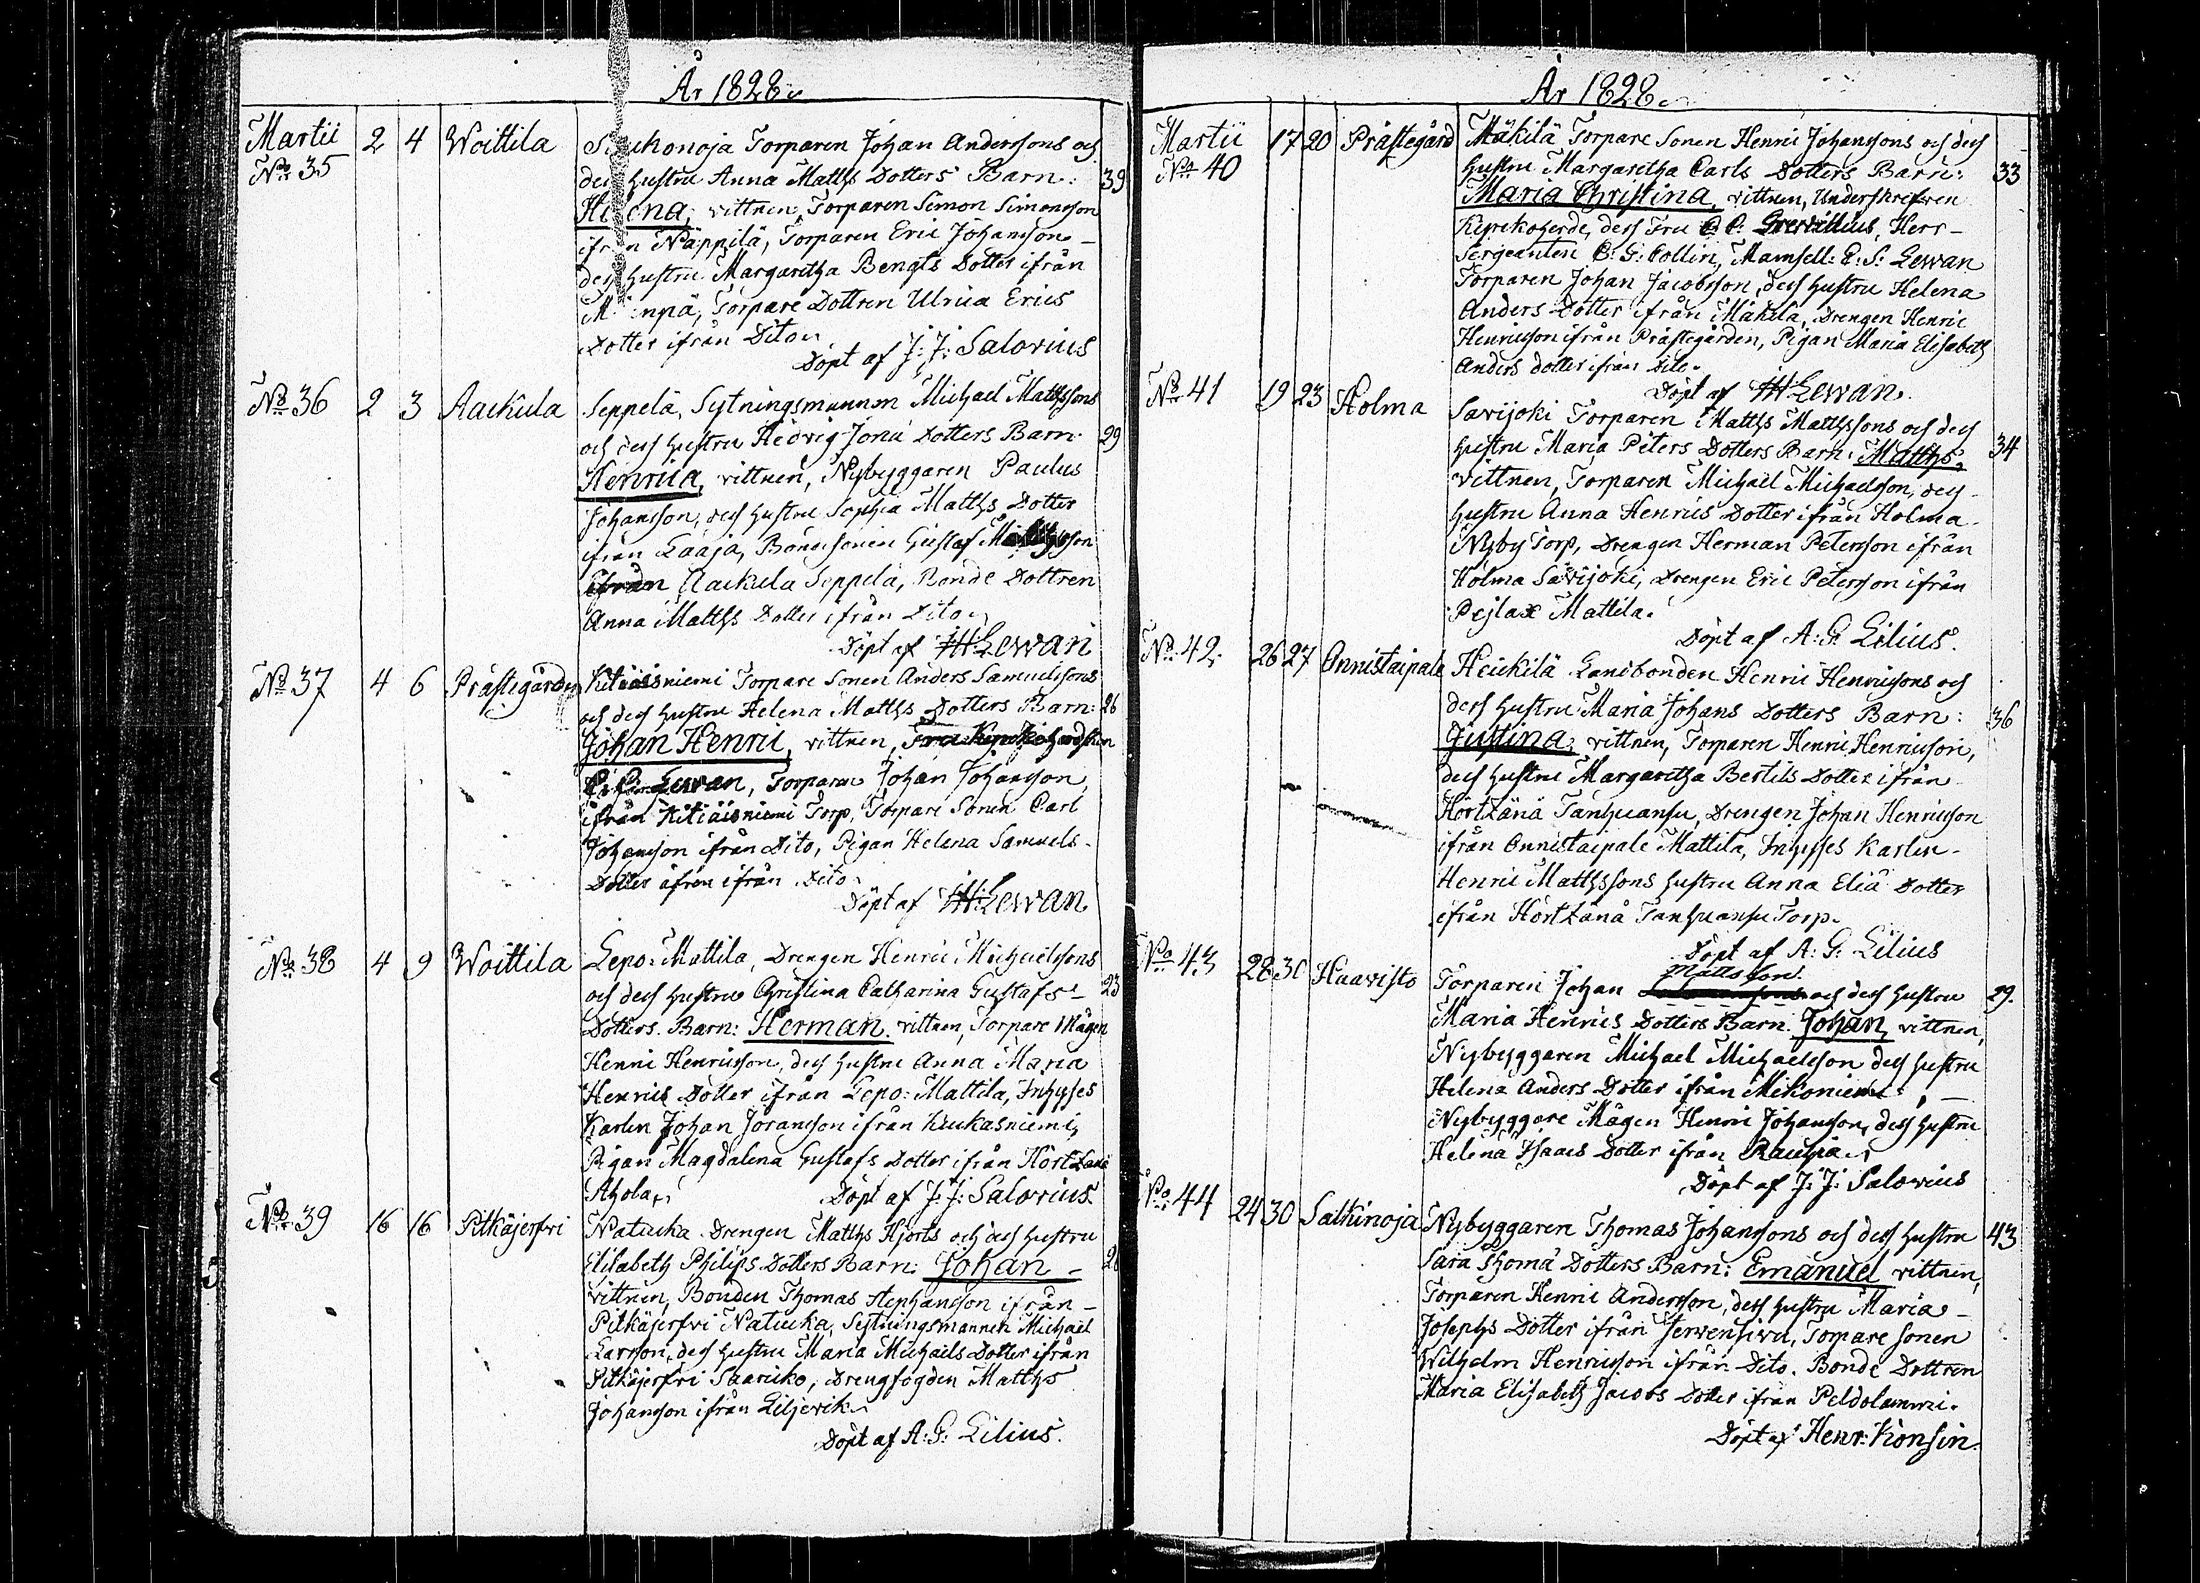 År 1828.
Martii 2 4 Woittila Torparen Johan Anderssons och
No 35 dess hustru Anna Matths Dotters Barn: 39
Helena, vittnen, Torparen Simon Simonsson
ifrån Näppilä, Torparen Eric Johansson
dess hustru Margaretha Bengts Dotter ifrån
Torpare Dottren Ulrica Erics
Dotter ifrån Dito
Döpt af J: J: Salovius
No 36 2 3 Aackula Seppelä, Sytningsmannen Michael Mathssons
och dess hustru Hedvig Jona Dotters Barn 29
Henrica, vittnen, Nybyggaren Paulus
Johansson, dess hustru Sophia Matths Dotter
ifrån Laaja, Bondesonen Gustaf
ifrån Aackula Seppelä, Bonde Dottren
Anna Matths Dotter ifrån Dito
Döpt af IH Lewan
No 37 4 6 Prästegården Kitiäisniemi Torpare Sonen Anders Samuelssons
och dess hustru Helena Matths Dotters Barn: 26
Johan Henric, vittnen, Fru
Lewan, Torparen Johan Johansson
ifrån Kitiäisniemi Torp, Torpare Sonen Carl
Johansson ifrån Dito, Pigan Helena Samuels
Dotter äfven ifrån Dito
Döpt af IH Lewan
No 38 4 9 Woittila Lepo: Mattila, Drengen Henric Michaelssons
och dess hustru Christina Catharina Gustafs 23
Dotters Barn: Herman. vittnen, Torpare Mågen
Henric Henricsson, dess hustru Anna Maria
Henrics Dotter ifrån Lepo: Mattila, Inhyses
Karlen Johan Joransson ifrån Kuukasniemi,
Pigan Magdalena Gustafs Dotter ifrån Hörtzänä
Ahola,
Döpt af J: J: Salovius
No 39 16 16 Pitkäjerfvi Natucka Drengen Matths Hjorts och dess hustru
Elisabeth Philips Dotters Barn: Johan
vittnen, Bonden Thomas Stephansson ifrån
Pitkäjerfvi Natucka, Sytningsmannen Michael
Larsson, dess hustru Maria Michaels Dotter ifrån
Pitkäjerfvi Saaricko, Drengfogden Matths
Johansson ifrån Liljevik
Döpt af A: G: Lilius.
År 1828.
Martii 17 20 Prästegård Mäkilä Torpare Sonen Henric Johanssons och dess
No 40 hustru Margaretha Carls Dotters Barn: 33
Maria Christina, vittnen, Underskrefven
Kyrckoherde, dess Fru Grevillius, Herr
Sergeanten C: G: Collin, Mamsell: E: S: Lewan
Torparen Johan Jacobsson, dess hustru Helena
Anders Dotter ifrån Mäkilä, Drengen Henric
Henricsson ifrån Prästegården, Pigan Maria Elisabeth
Anders dotter ifrån Dito.
Döpt af IH Lewan.
No 41 19 23 Holma Savijoki Torparen Matths Matthssons och dess
hustru Maria Peters Dotters Barn: Matths, 34
vittnen, Torparen Michael Michaelsson, dess
hustru Anna Henrics Dotter ifrån Holma
Nyby Torp, Drengen Herman Petersson ifrån
Holma Savijoki, Drengen Eric Petersson ifrån
Pejlax Mattila.
Döpt af A: G: Lilius.
No 42. 26 27 Onnistaipale Heickilä Landbonden Henric Henricssons och
dess hustru Maria Johans Dotters Barn: 36
Justina, vittnen, Torparen Henric Henricsson,
dess hustru Margaretha Bertils Dotter ifrån
Hörtzänä Tanhuansu, Drengen Johan Henricsson
ifrån Onnistaipale Mattila, Inhyses Karlen
Henric Matthssons hustru Anna Eliä Dotter
ifrån Hörtzänä Tanhuansu Torp.
Döpt af A: G: Lilius
No 43 28 30 Haavisto Torparen Johan Mattsson och dess hustru 29.
Maria Henrics Dotters Barn: Johan, vittnen,
Nybyggaren Michael Michaelsson dess hustru
Helena Anders Dotter ifrån Mikoniemi,
Nybyggare Mågen Henric Johansson, dess hustru
Helena Isaacs Dotter ifrån Rauhia
Döpt af J: J: Salovius
No 44 24 30 Salkinoja Nybyggaren Thomas Johanssons och dess hustru 43
Sara Thoma Dotters Barn: Emanuel vittnen,
Torparen Henric Andersson, dess hustru Maria
Josephs Dotter ifrån Jervensivu, Torpare Sonen
Wilhelm Henricsson ifrån Dito. Bonde Dottren
Maria Elisabeth Jacobs Dotter ifrån Peldolammi.
Döpt af Henr: Konsin.